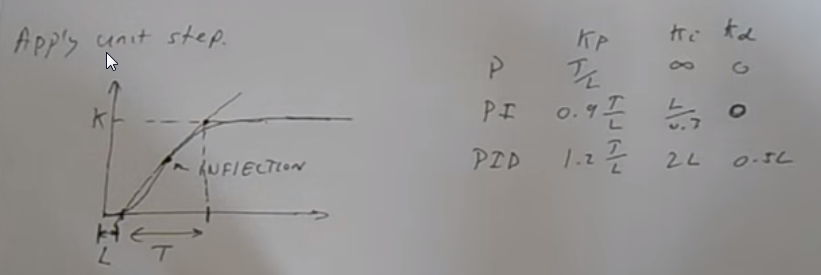 Apply unit step.
K
INFLECTION
L
T
Kp Ki Kd
P T/L ∞ 0
PI 0.9 T/L L/0.3 0
PID 1.2 T/L 2L 0.5L